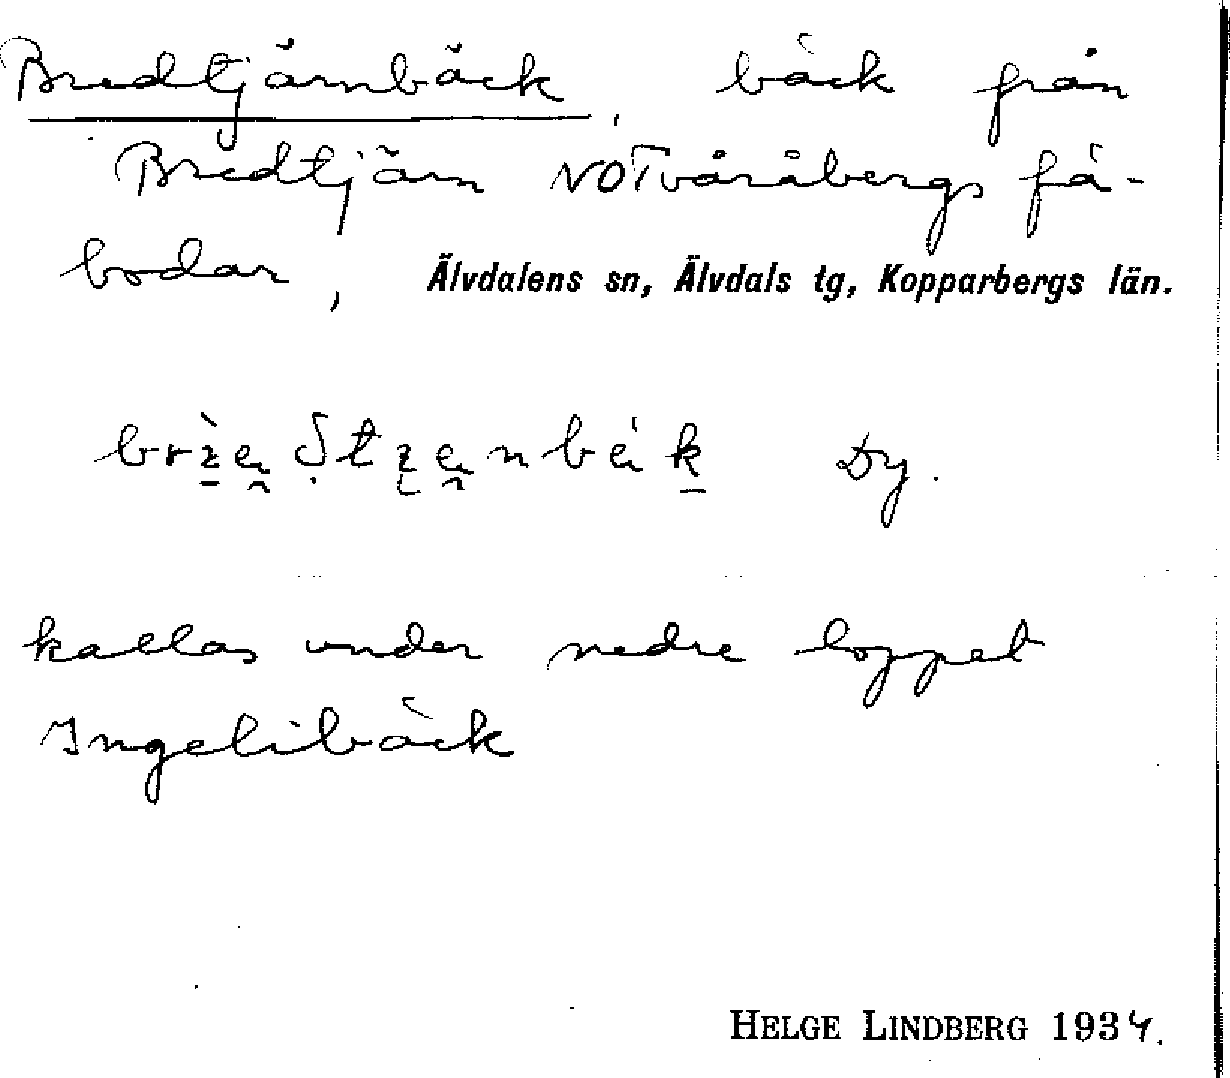 Bredtjärnbäck, bäck från
Bredtjärn NO Tvåråbergs fä-
bodar, Älvdalens sn, Älvdals tg, Kopparbergs län.
Dy.
kallas under nedre loppet
Ingelibäck
HELGE LINDBERG 1934.